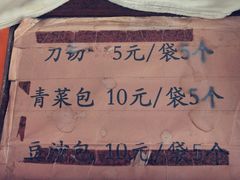 刀切 5元/袋5个
青菜包 10元/袋5个
豆沙包 10元/袋5个